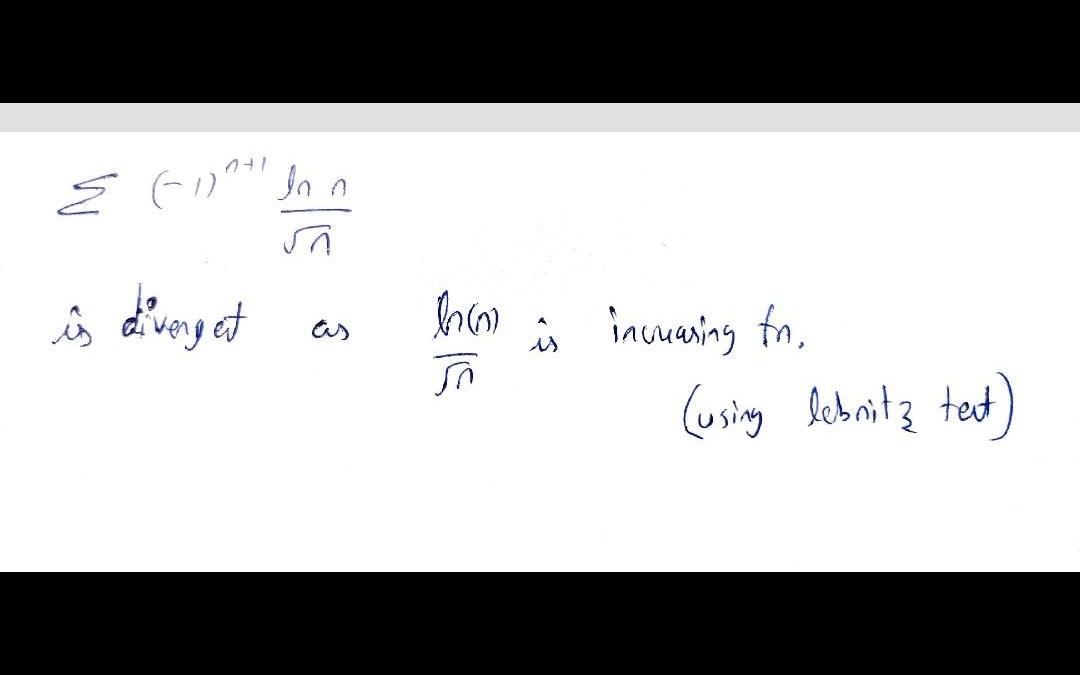 Σ (-1)^{n+1} ln n / √n
is divergent as ln(n) / √n is increasing fn.
(using lebnitz test)